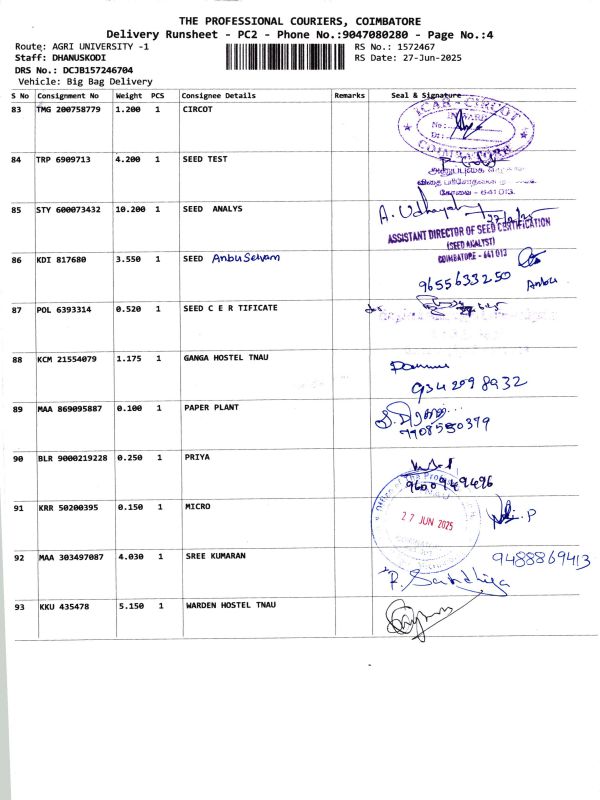 THE PROFESSIONAL COURIERS, COIMBATORE
Delivery Runsheet - PC2 - Phone No.:9047080280 - Page No.:4
Route: AGRI UNIVERSITY -1 RS No.: 1572467
Staff: DHANUSKODI RS Date: 27-Jun-2025
DRS No.: DCJB157246704
Vehicle: Big Bag Delivery
S No Consignment No Weight PCS Consignee Details Remarks Seal & Signature
83 TMG 200758779 1.200 1 CIRCOT
ICAR - CIRCOT
No:
Dt:
COIMBATORE
84 TRP 6909713 4.200 1 SEED TEST
கோவை - 641 013.
85 STY 600073432 10.200 1 SEED ANALYS A. Udhaya
ASSISTANT DIRECTOR OF SEED CERTIFICATION
(SEED ANALYST)
COIMBATORE - 641 013
86 KDI 817680 3.550 1 SEED Anbu Selvam
9655633250 Anbu
87 POL 6393314 0.520 1 SEED C E R TIFICATE
88 KCM 21554079 1.175 1 GANGA HOSTEL TNAU
9342098932
89 MAA 869095887 0.100 1 PAPER PLANT
7708550379
90 BLR 9000219228 0.250 1 PRIYA
9600949496
91 KRR 50200395 0.150 1 MICRO
Office of The
27 JUN 2025
92 MAA 303497087 4.030 1 SREE KUMARAN 9488869413
93 KKU 435478 5.150 1 WARDEN HOSTEL TNAU